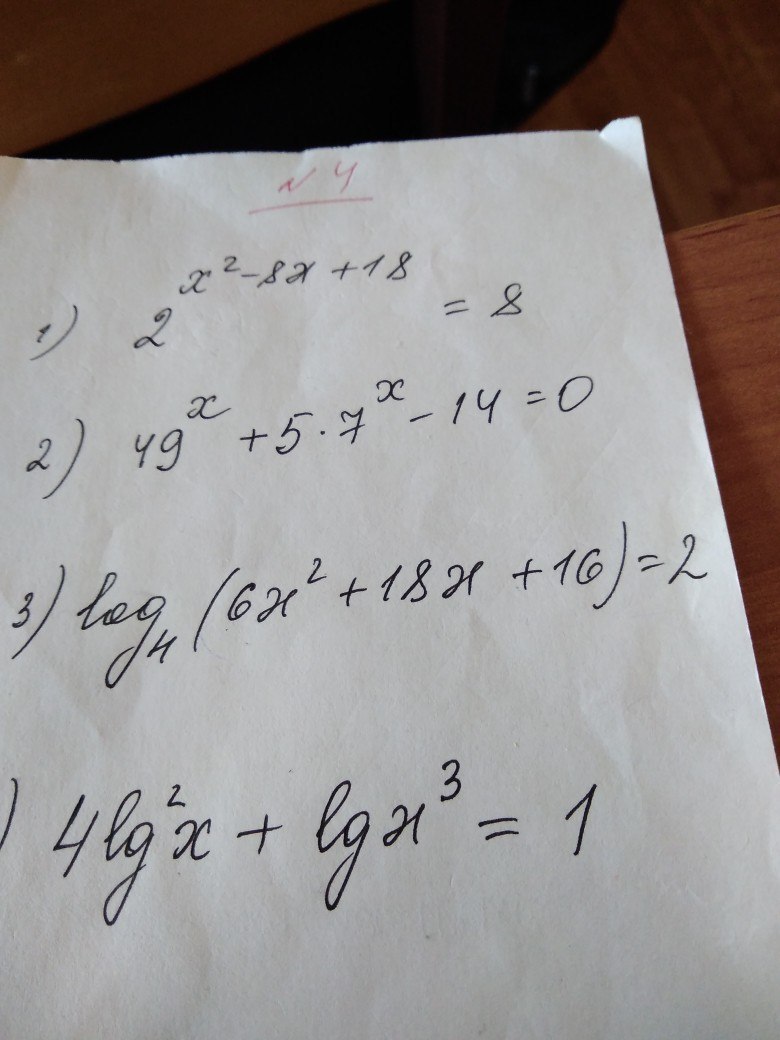 № 4
1) 2^{x^2-8x+18} = 8
2) 49^x + 5·7^x - 14 = 0
3) log_4 (6x^2 + 18x + 16) = 2
) 4lg^2x + lgx^3 = 1